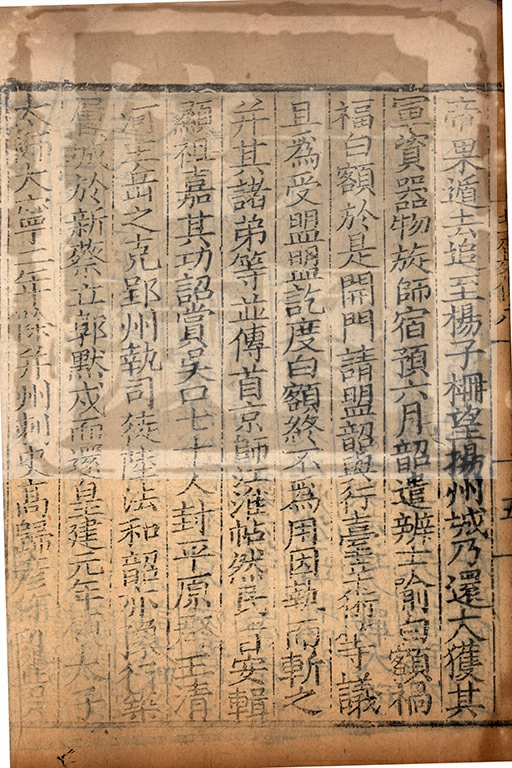 帝果遁去追至楊子柵望揚州城乃還大獲其
軍資器物旋師宿預六月韶遣辨士喻白額禍
福白額於是開門請盟韶與行臺辛術等議
且為受盟盟訖度白額終不為用因執而斬之
并其諸弟等並傳首京師江淮帖然民皆安輯
顯祖嘉其功詔賞吳口七十人封平原郡王清
河王岳之克郢州執司徒陸法和韶亦豫行築
層城於新蔡立郭默戍而還皇建元年領太子
太師大寧二年除并州刺史高歸彥
五